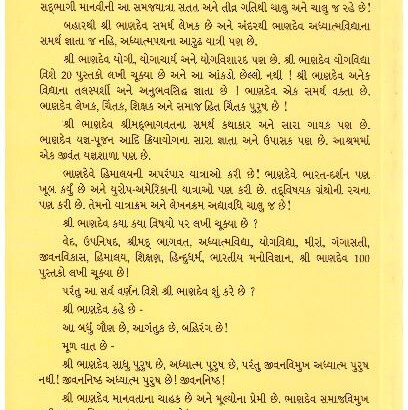 સદ્ભાગી માનવીની આ સમજયાત્રા સતત અને તીવ્ર ગતિથી ચાલુ અને ચાલુ જ રહે છે!
બહારથી શ્રી ભાણદેવ સમર્થ લેખક છે અને અંદરથી ભાણદેવ અધ્યાત્મવિદ્યાના
સમર્થ જ્ઞાતા જ નહિ, અધ્યાત્મપથના આરૂઢ યાત્રી પણ છે.
શ્રી ભાણદેવ યોગી, યોગાચાર્ય અને યોગવિશારદ પણ છે. શ્રી ભાણદેવ યોગવિદ્યા
વિશે 20 પુસ્તકો લખી ચૂક્યા છે અને આ આંકડો છેલ્લો નથી ! શ્રી ભાણદેવ અનેક
વિદ્યાના તલસ્પર્શી અને અનુભવસિદ્ધ જ્ઞાતા છે ! ભાણદેવ એક સમર્થ વક્તા છે.
ભાણદેવ લેખક, ચિંતક, શિક્ષક અને સમાજ હિત ચિંતક પુરુષ છે !
શ્રી ભાણદેવ શ્રીમદ્ભાગવતના સમર્થ કથાકાર અને સારા ગાયક પણ છે.
ભાણદેવ યજ્ઞ-પૂજન આદિ ક્રિયાયોગના સારા જ્ઞાતા અને ઉપાસક પણ છે. આશ્રમમાં
એક જીવંત યજ્ઞશાળા પણ છે.
ભાણદેવે હિમાલયની અપરંપાર યાત્રાઓ કરી છે! ભાણદેવે ભારત-દર્શન પણ
ખૂબ કર્યું છે અને યુરોપ-અમેરિકાની યાત્રાઓ પણ કરી છે. તદ્વિષયક ગ્રંથોની રચના
પણ કરી છે. તેમનો યાત્રાક્રમ અને લેખનક્રમ અદ્યાવધિ ચાલુ જ છે!
શ્રી ભાણદેવ કયા કયા વિષયો પર લખી ચૂક્યા છે ?
વેદ, ઉપનિષદ, શ્રીમદ્ ભાગવત, અધ્યાત્મવિદ્યા, યોગવિદ્યા, મીરાં, ગંગાસતી,
જીવનવિકાસ, હિમાલય, શિક્ષણ, હિન્દુધર્મ, ભારતીય મનોવિજ્ઞાન, શ્રી ભાણદેવ 100
પુસ્તકો લખી ચૂક્યા છે!
પરંતુ આ સર્વ વર્ણન વિશે શ્રી ભાણદેવ શું કરે છે ?
શ્રી ભાણદેવ કહે છે -
આ બધું ગૌણ છે, આગંતુક છે, બહિરંગ છે!
મૂળ વાત છે -
શ્રી ભાણદેવ સાધુ પુરુષ છે, અધ્યાત્મ પુરુષ છે, પરંતુ જીવનવિમુખ અધ્યાત્મ પુરુષ
નથી! જીવનનિષ્ઠ અધ્યાત્મ પુરુષ છે! જીવનનિષ્ઠ!
શ્રી ભાણદેવ માનવતાના ચાહક છે અને મૂલ્યોના પ્રેમી છે. ભાણદેવ સમાજવિમુખ